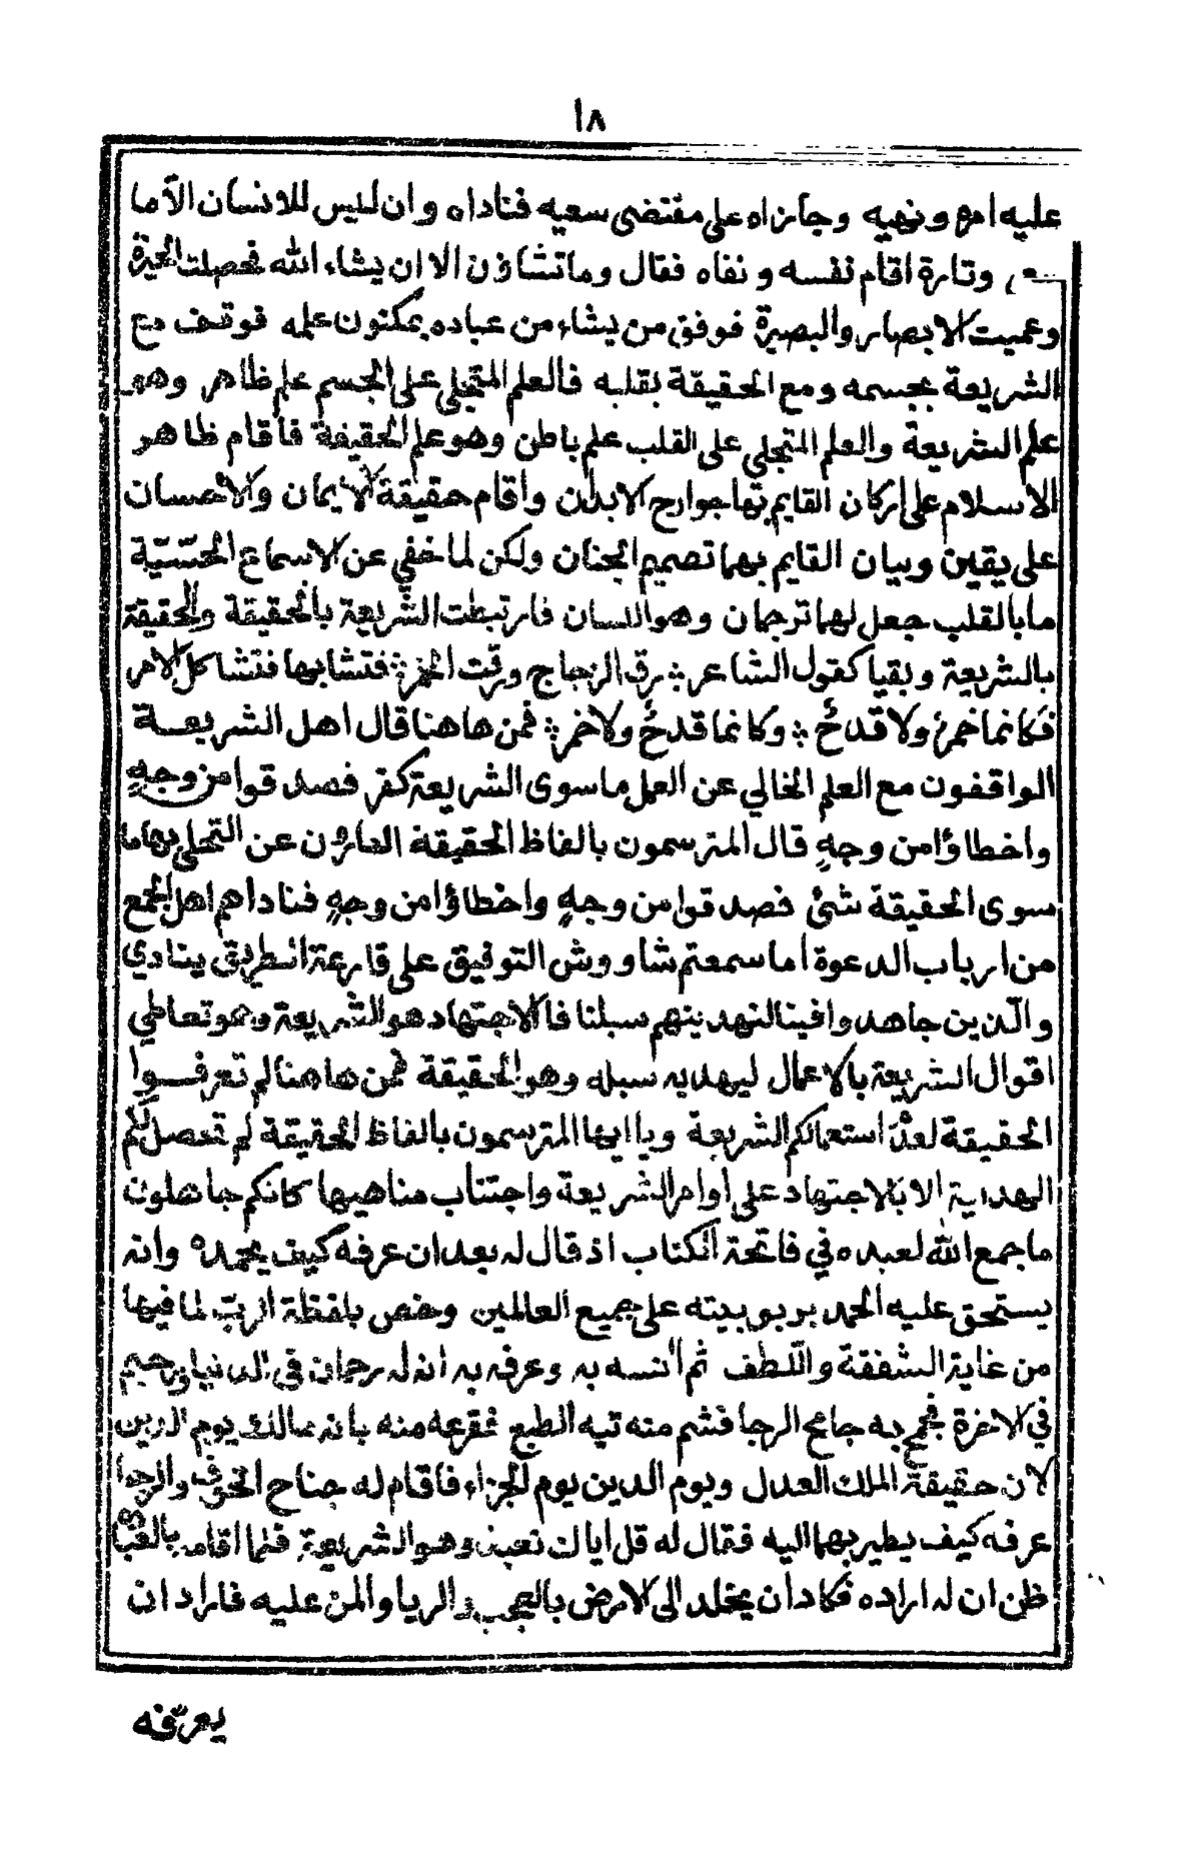 ١٨
عليه امره ونهيه وجازاه على مقتضى سعيه فناداه وان ليس للانسان الاّ ما
وتارة اقام نفسه ونفاه فقال وما تشاؤن الا ان يشاء الله فحصلت الحيرة
وعميت الابصار والبصيرة فوفق من يشاء من عباده بمكنون علمه فوقف مع
الشريعة بجسمه ومع الحقيقة بقلبه فالعلم المتجلي على الجسم علم ظاهر وهو
علم الشريعة والعلم المتجلي على القلب علم باطن وهو علم الحقيقة فأقام ظاهر
الاسلام على اركان القايم بها جوارح الابدان واقام حقيقة الايمان والاحسان
على يقين وبيان القايم بهما تصميم الجنان ولكن لما خفي عن الاسماع الحسّيّة
ما بالقلب جعل لهما ترجمان وهو اللسان فارتبطت الشريعة بالحقيقة والحقيقة
بالشريعة وبقيا كقول الشاعر ؞ رق الزجاج ورقت الخمر ؞ فتشابها فتشاكل الامر
فكانما خمرٌ ولا قدحٌ ؞ وكانما قدحٌ ولا خمر ؞ فمن هاهنا قال اهل الشريعة
الواقفون مع العلم الخالي عن العمل ما سوى الشريعة كفر فصدقوا من وجهٍ
واخطاؤا من وجهٍ قال المترسمون بالفاظ الحقيقة العارون عن التحلي بها ما
سوى الحقيقة شئ فصدقوا من وجهٍ واخطاؤا من وجهٍ فناداهم اهل الجمع
من ارباب الدعوة اما سمعتم شاووش التوفيق على قارعة الطريق ينادي
والّذين جاهدوا فينا لنهدينهم سبلنا فالاجتهاد هو الشريعة وهو تعاطي
اقوال الشريعة بالاعمال ليهديه سبله وهو الحقيقة فمن هاهنا لم تعرفوا
الحقيقة لعدم استعمالكم الشريعة ويا ايها المترسمون بالفاظ الحقيقة لم تحصل لكم
الهداية الا بالاجتهاد على اوامر الشريعة واجتناب مناهيها كانكم جاهلون
ما جمع الله لعبده في فاتحة الكتاب اذ قال له بعد ان عرفه كيف يحمده وانه
يستحق عليه الحمد بربوبيته على جميع العالمين وخص بلفظة الربّ لما فيها
من غاية الشفقة واللّطف ثم آنسه به وعرفه به انه له رحمان في الدنيا ورحيم
في الاخرة فجمح به جامح الرجا فشم منه تيه الطبع فقرعه منه بانه مالك يوم الدين
لان حقيقة الملك العدل ويوم الدين يوم الجزاء فاقام له جناح الخوف والرجا
عرفه كيف يطير بهما اليه فقال له قل اياك نعبد وهو الشريعة فلما اقامه بالعبادة
ظن ان له اراده فكاد ان يخلد الى الارض بالعجب والريا والمن عليه فاراد ان
يعرّفه